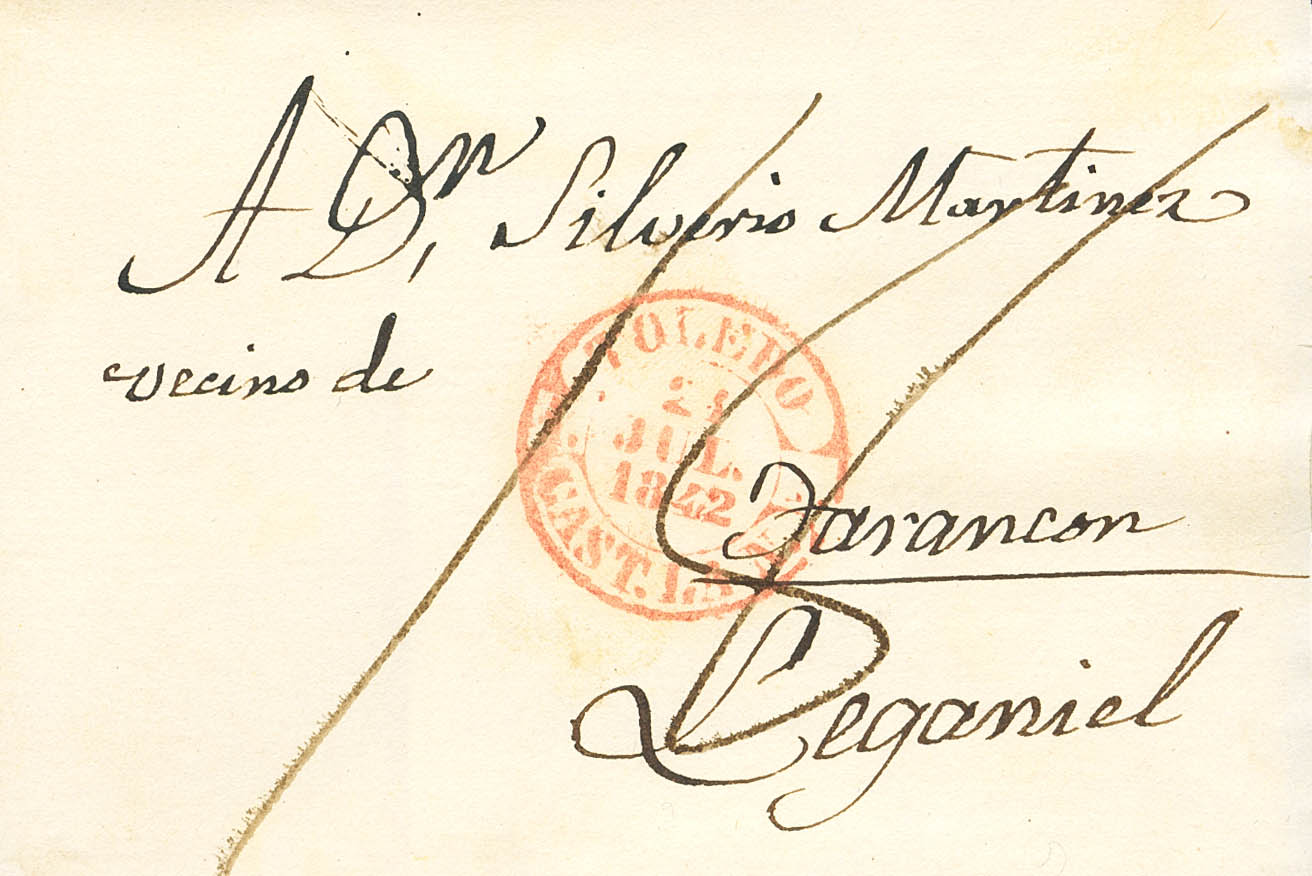 A Dn, Silverio Martinez
vecino de
TOLEDO
21
JUL.
1842
CAST. LA N.
Tarancon
Leganiel